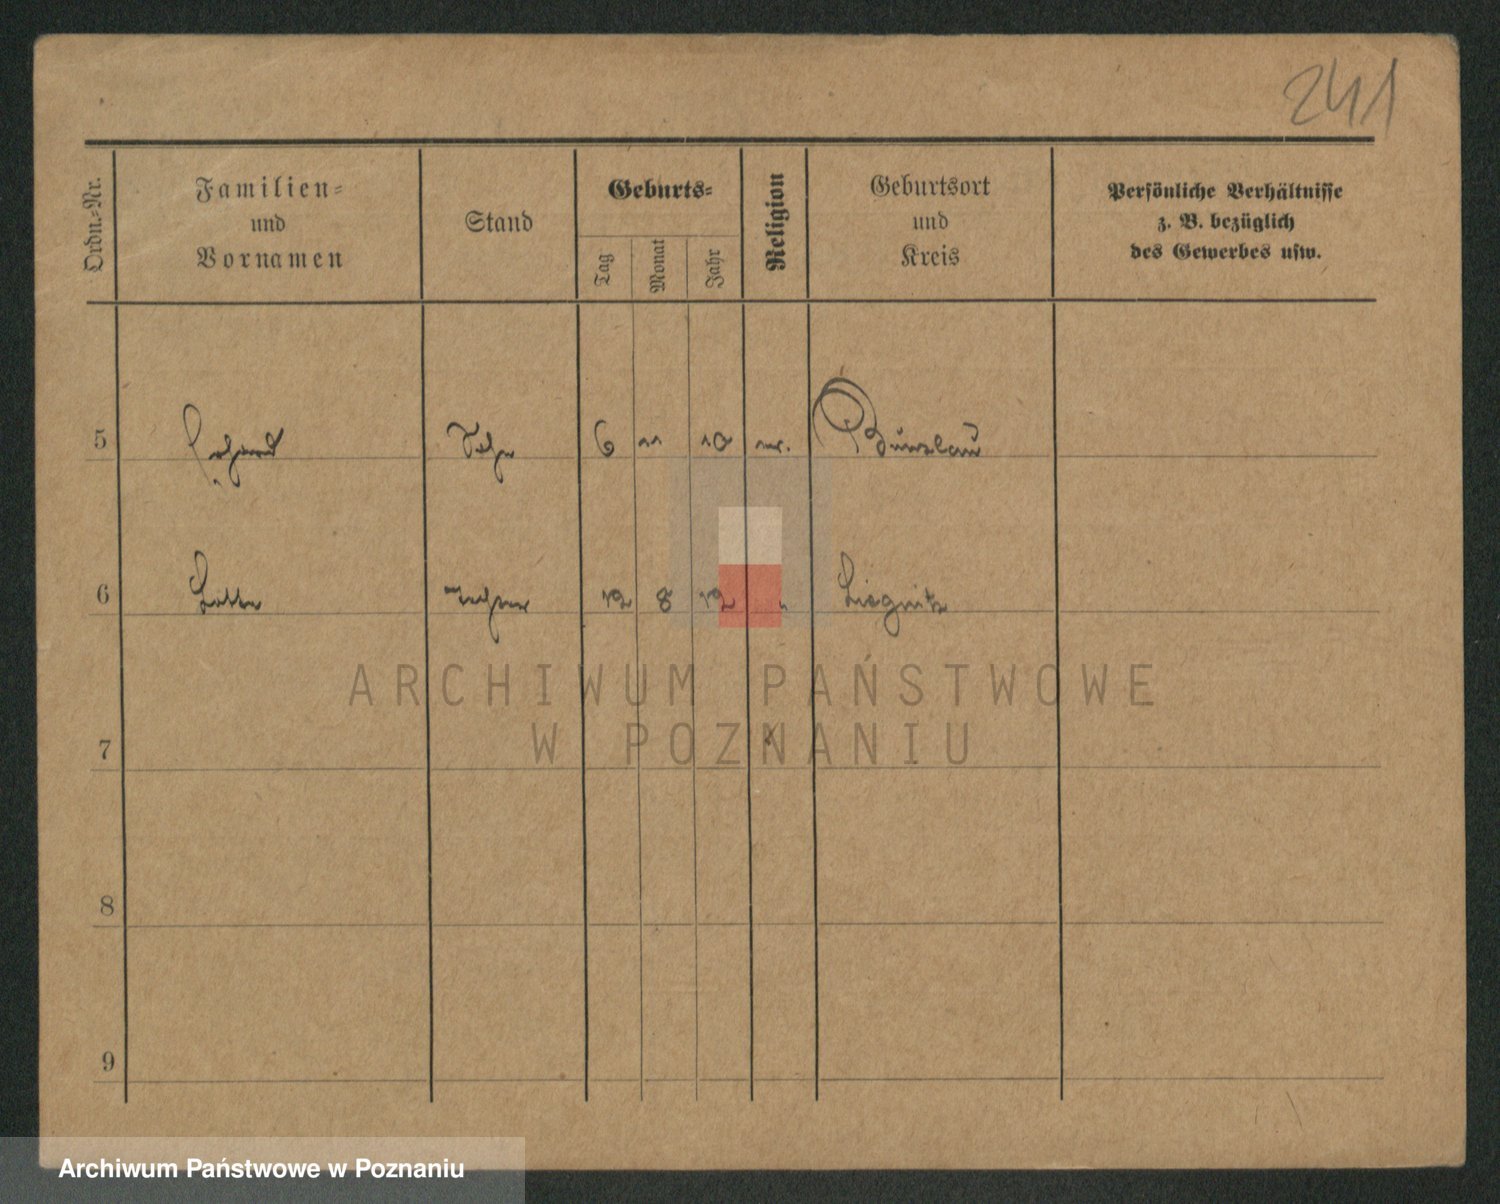 241
Ordn.=Nr.
Familien=
und
Vornamen
Stand
Geburts=
Tag
Monat
Jahr
Religion
Geburtsort
und
Kreis
Persönliche Verhältnisse
z. B. bezüglich
des Gewerbes usw.
5 Erhard Sohn 6 11 10 Bunzlau
6 Lotte Tochter 12 8 12 " Liegnitz
7
8
9
ARCHIWUM PAŃSTWOWE
W POZNANIU
Archiwum Państwowe w Poznaniu